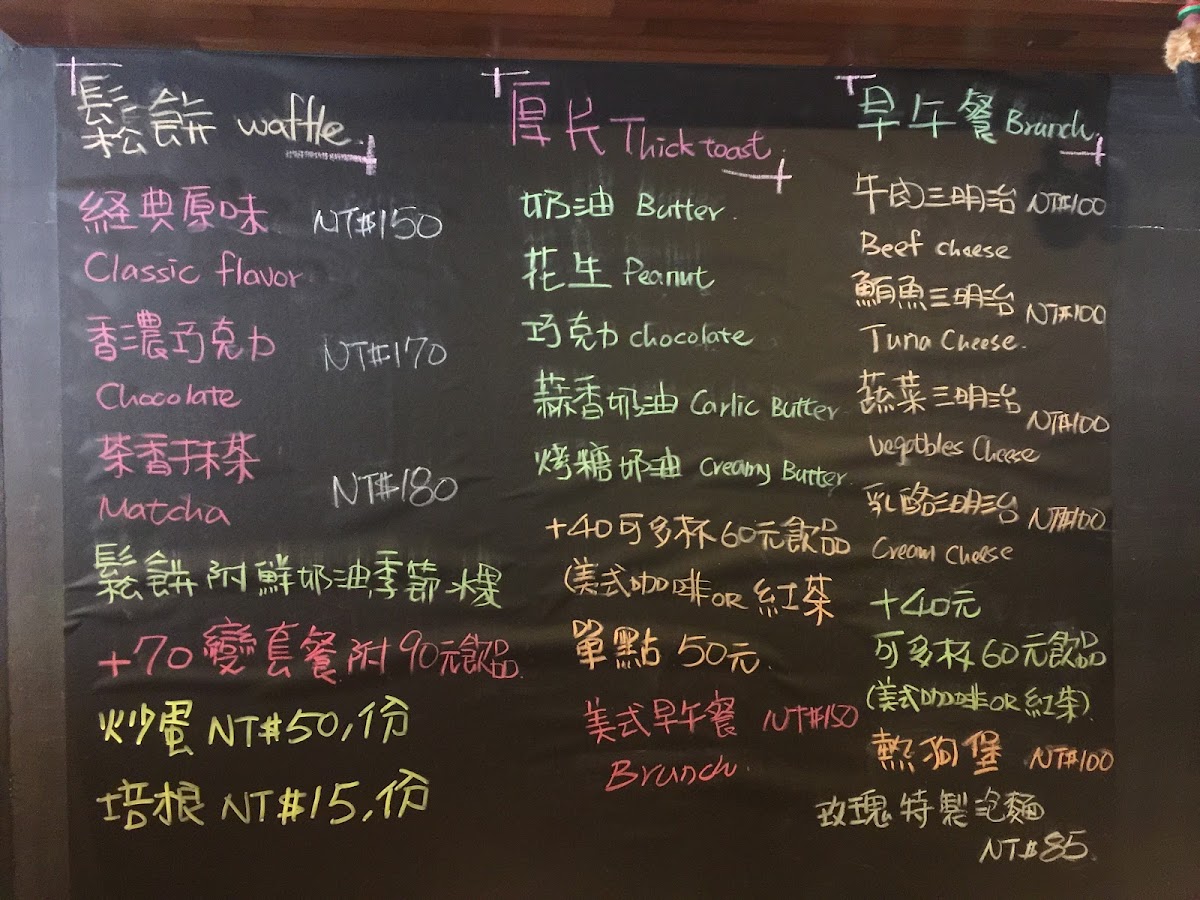 鬆餅 waffle.
経典原味 NT$150
Classic flavor
香濃巧克力 NT$170
Chocolate
茶香抹茶
NT$180
Matcha
鬆餅附鮮奶油,季節水果
+70變套餐附90元飲品
炒蛋 NT$50,/份
培根 NT$15,/份
厚片 Thick toast.
奶油 Butter.
花生 Peanut
巧克力 chocolate
蒜香奶油 Carlic Butter.
烤糖奶油 Creamy Butter.
+40可多杯60元飲品
(美式咖啡OR紅茶
單點 50元.
美式早午餐 NT$150
Brunch.
早午餐 Brunch.
牛肉三明治 NT$100
Beef cheese
鮪魚三明治 NT$100
Tuna Cheese.
蔬菜三明治 NT$100
Vegatbles Cheese
乳酪三明治 NT$100
Cream Cheese
+40元
可多杯60元飲品
(美式咖啡OR紅茶)
熱狗堡 NT$100
玫瑰特製泡麵
NT$85.